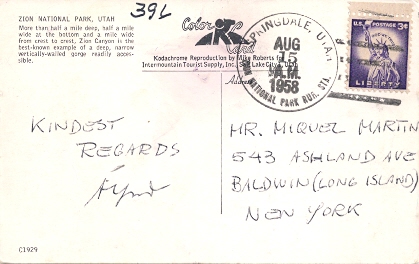 39L
ZION NATIONAL PARK, UTAH
More than half a mile deep, half a mile
wide at the bottom and a mile wide
from crest to crest, Zion Canyon is the
best-known example of a deep, narrow
vertically-walled gorge readily acces-
sible.
Color Card
Kodachrome Reproduction by Mike Roberts for
Intermountain Tourist Supply, Inc., Salt Lake City, Utah
Address
SPRINGDALE, UTAH
AUG
7
A.M.
1958
ZION NATIONAL PARK RUR. STA.
U.S. POSTAGE 3¢
LIBERTY
KINDEST
REGARDS
MR. MIQUEL MARTIN
543 ASHLAND AVE
BALDWIN (LONG ISLAND)
NEW YORK
C1929